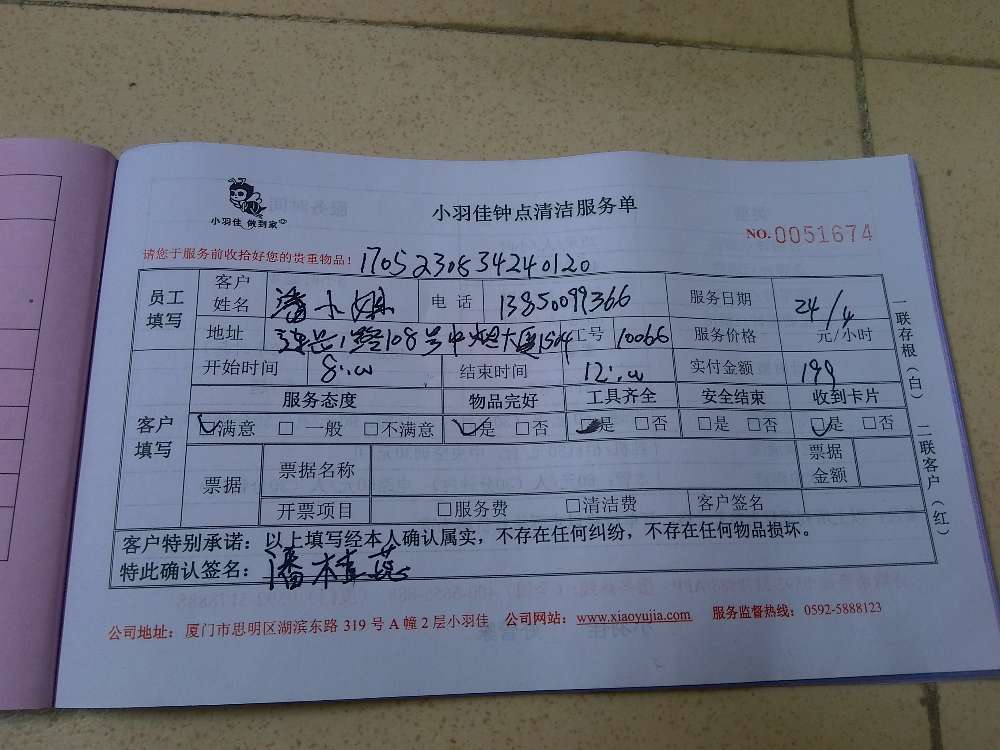 小羽佳 做到家
小羽佳钟点清洁服务单
NO. 0051674
请您于服务前收拾好您的贵重物品! 1705230834240120
员工填写 客户姓名 潘小姐 电 话 13850099366 服务日期 24/4
地址 108号中 大厦1504 工号 10066 服务价格 元/小时
客户填写 开始时间 8:00 结束时间 12:00 实付金额 199
服务态度 物品完好 工具齐全 安全结束 收到卡片
☑满意 □ 一般 □不满意 ☑是 □否 ☑是 □否 □是 □否 ☑是 □否
票据 票据名称 票据金额
开票项目 □服务费 □清洁费 客户签名
客户特别承诺：以上填写经本人确认属实，不存在任何纠纷，不存在任何物品损坏。
特此确认签名： 潘桂英
一联存根（白） 二联客户（红）
公司地址：厦门市思明区湖滨东路 319 号 A 幢 2 层小羽佳 公司网站：www.xiaoyujia.com 服务监督热线：0592-5888123